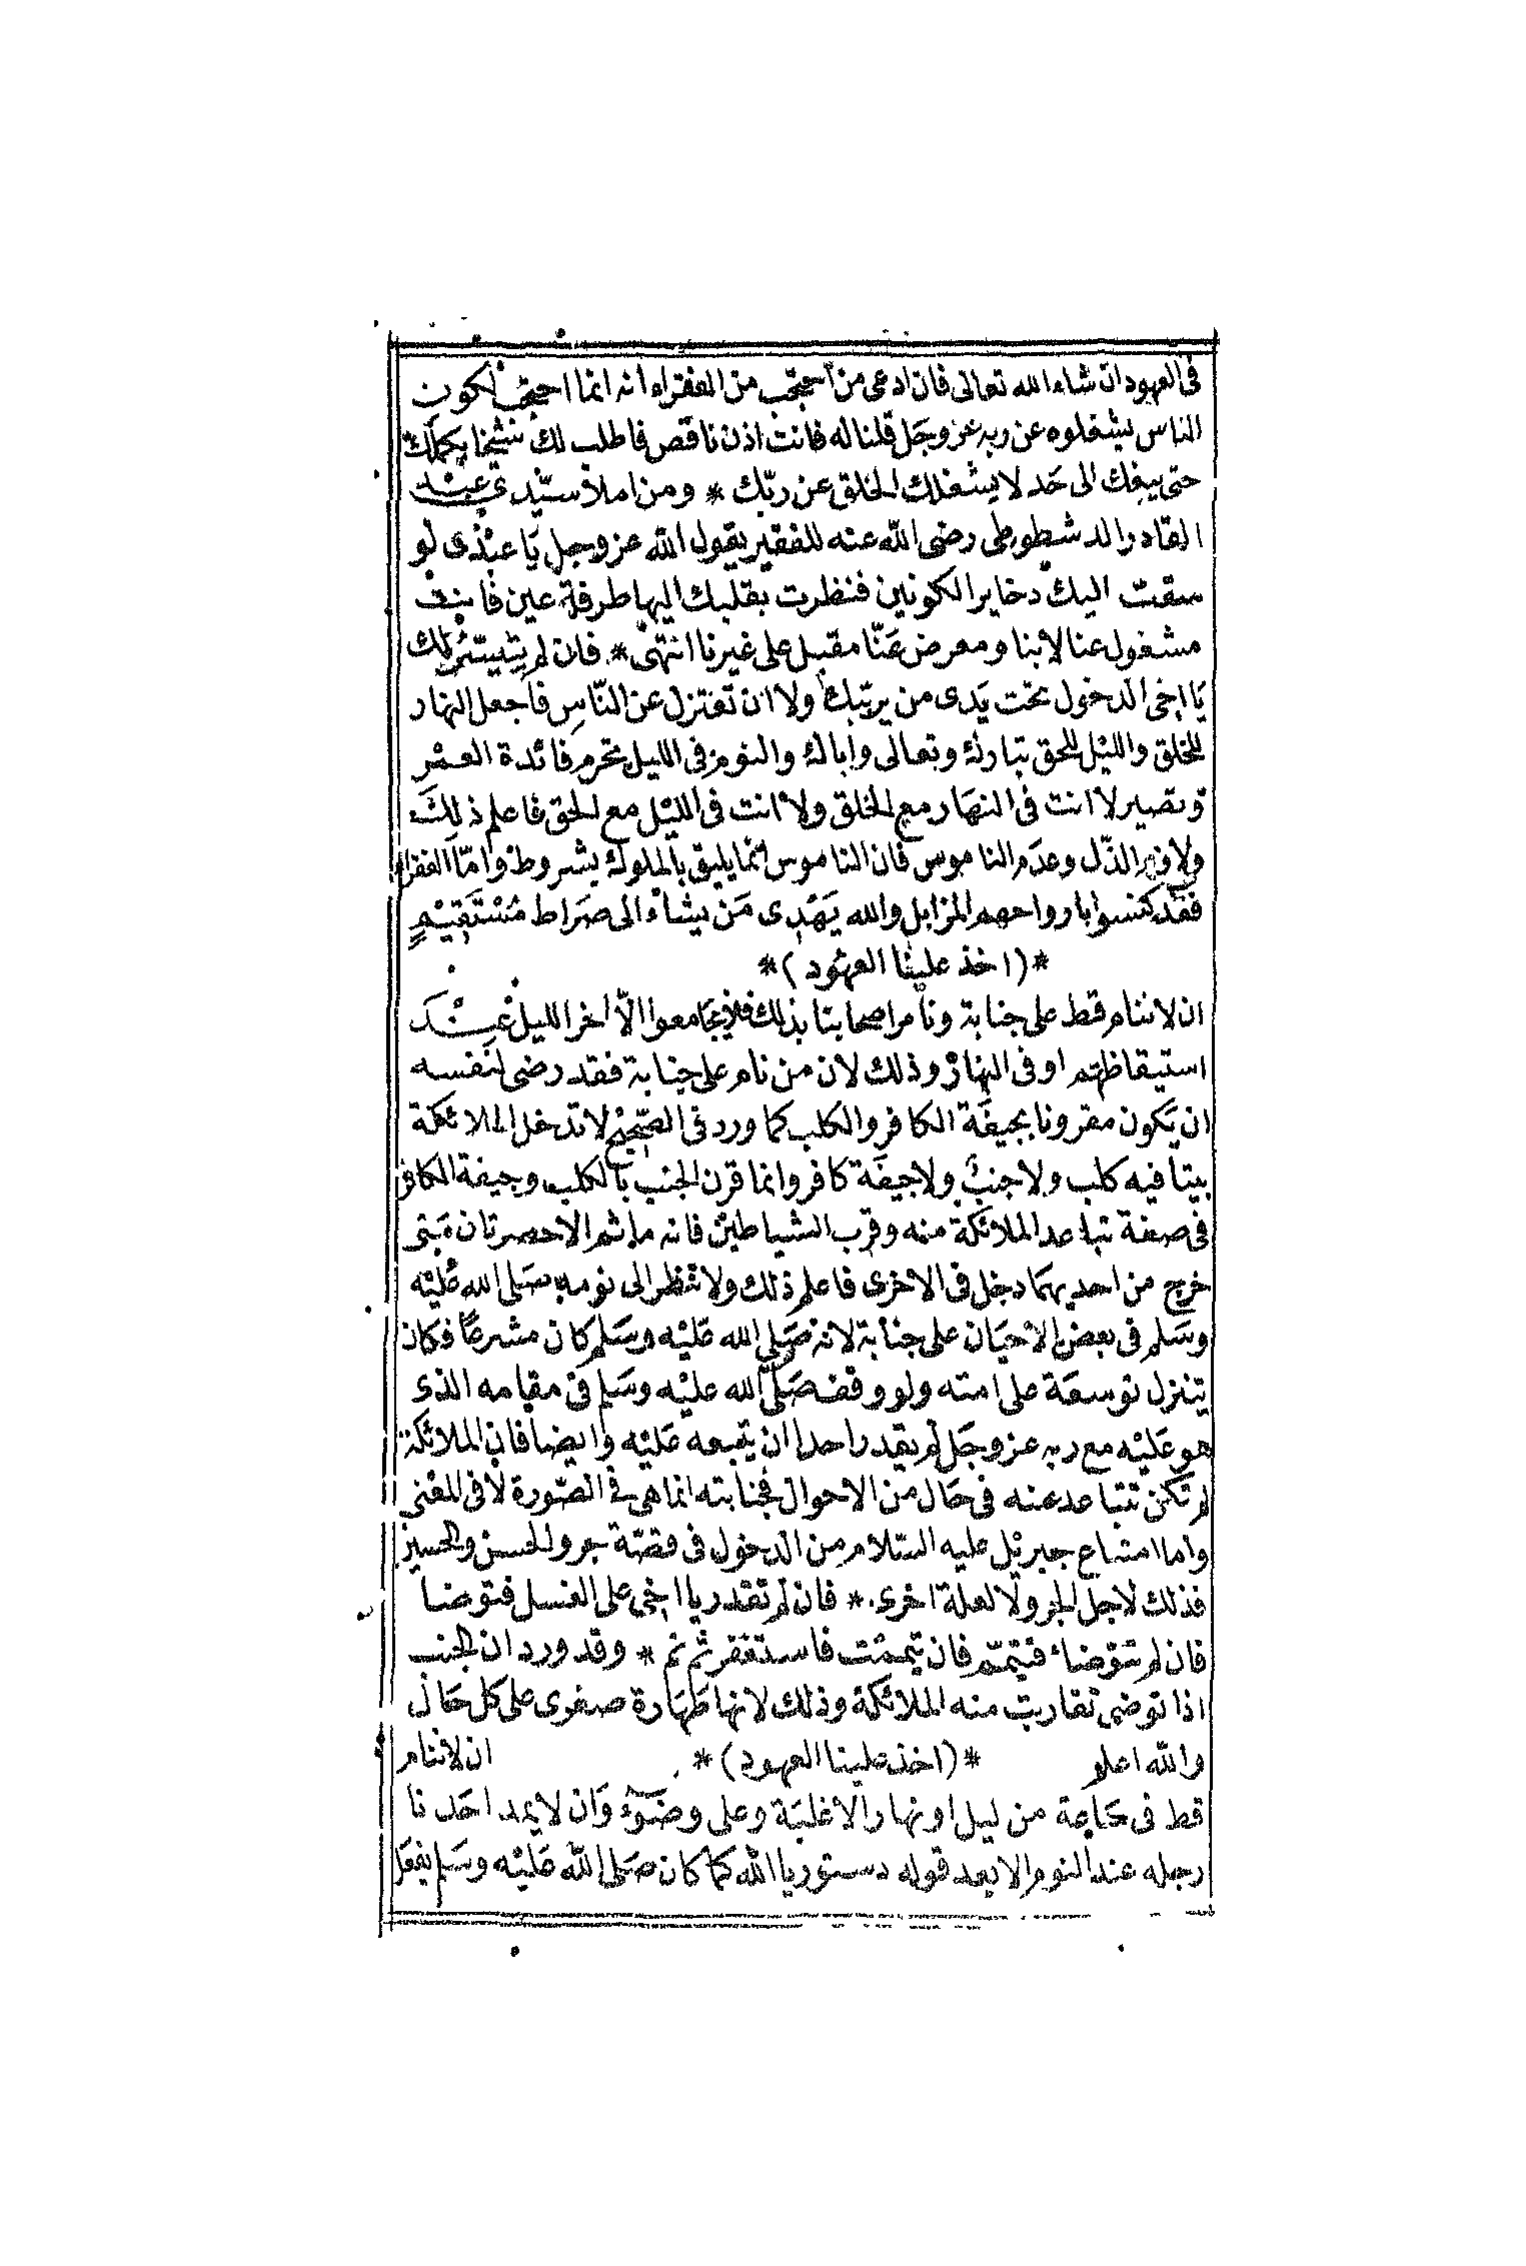 فى العهود ان شاء الله تعالى فان ادعى من احتجب من الفقراء انه انما احتجب لكون
الناس يشغلوه عن ربه عز وجل قلنا له فانت اذن ناقص فاطلب لك شيخا يكملك
حتى يبلغك الى حد لا يشغلك الخلق عن ربّك * ومن املاء سيّدى عبد
القادر الدشطوطى رضى الله عنه للفقير يقول الله عز وجل يا عبْدى لو
سقت اليك دخاير الكونين فنظرت بقلبك اليها طرفة عين فانت
مشغول عنا لا بنا ومعرض عَنّا مقبل على غيرنا انتهى * فان لم يتيسّر لك
يَا اخى الدخول تحت يَدى من يربّيك ولا ان تعتزل عن النّاسِ فاجعل النهار
للخلق والليْل للحق تبارك وتعالى واياك والنوم فى الليل تحرم فائدة العمْر
وتصير لا انت فى النهَار مع الخلق ولا انت فى الليْل مع الحق فاعلم ذلكَ
ولازم الذّل وعدَم الناموس فان الناموس انما يليق بالملوك بشروط وامّا الفقراء
فقد كنسوا بارواحهم المزابل والله يَهْدِى مَن يشاء الى صرَاط مُسْتَقِيْمٍ
*( اخذ علينا العهُود )*
ان لا ننام قط على جنابة ونامر اصحابنا بذلك فلا يجامعوا الّا اخر الليل عِنْد
استيقاظهم او فى النهار وذلك لان من نام على جنابة فقد رضى لنفسه
ان يَكون مقرونا بجيفَة الكافر والكلب كما ورد فى الصّحِيْح لا تدخل الملائكة
بيتا فيه كلب ولا جنبٌ ولا جيفَة كافر وانما قرن الجنب بالكلب وجيفة الكافر
فى صفة تباعد الملائكة منه وقرب الشياطيْن فانه ما ثم الا حضرتان مَتى
خرج من احديهمَا دخل فى الاخرى فاعلم ذلك ولا تنظر الى نومه صَلى الله عَليْه
وسَلم فى بعض الاحيَان على جنابة لانه صَلى الله عَليْه وسَلم كان مشرعًا فكان
يتنزل توسعَة على امته ولو وقف صَلى الله عليْه وسَلم فى مقامه الذى
هو عَليْه مع ربه عز وجَل لم يقدر احد ان يتبعه عَليْه وايضا فان الملائكة
لم تكن تتباعد عنه فى حَال من الاحوال فجنابته انما هى فى الصّورة لا فى المعْنى
واما امتناع جبريْل عليه السّلام من الدخول فى قصّة جرو الحسن والحسين
فذلك لاجل الجرو لا لعلة اخرى * فان لم تقدر يا اخى على الغسل فتوضا
فان لم تتوضاء فتيمّم فان تيممْت فاستغفر ثم نم * وقد ورد ان الجنب
اذا توضى تقاربت منه الملائكة وذلك لانها طَهَارة صغرى على كل حَال
والله اعلم *( اخذ علينا العهود )* ان لا ننام
قط فى حَاعة من ليل او نهار الا غلبَة وعلى وضَوْء وَان لا يمد احَدنا
رجله عند النوم الا بعد قوله دستور يا الله كما كان صَلى الله عَليْه وسَلم يفعَل